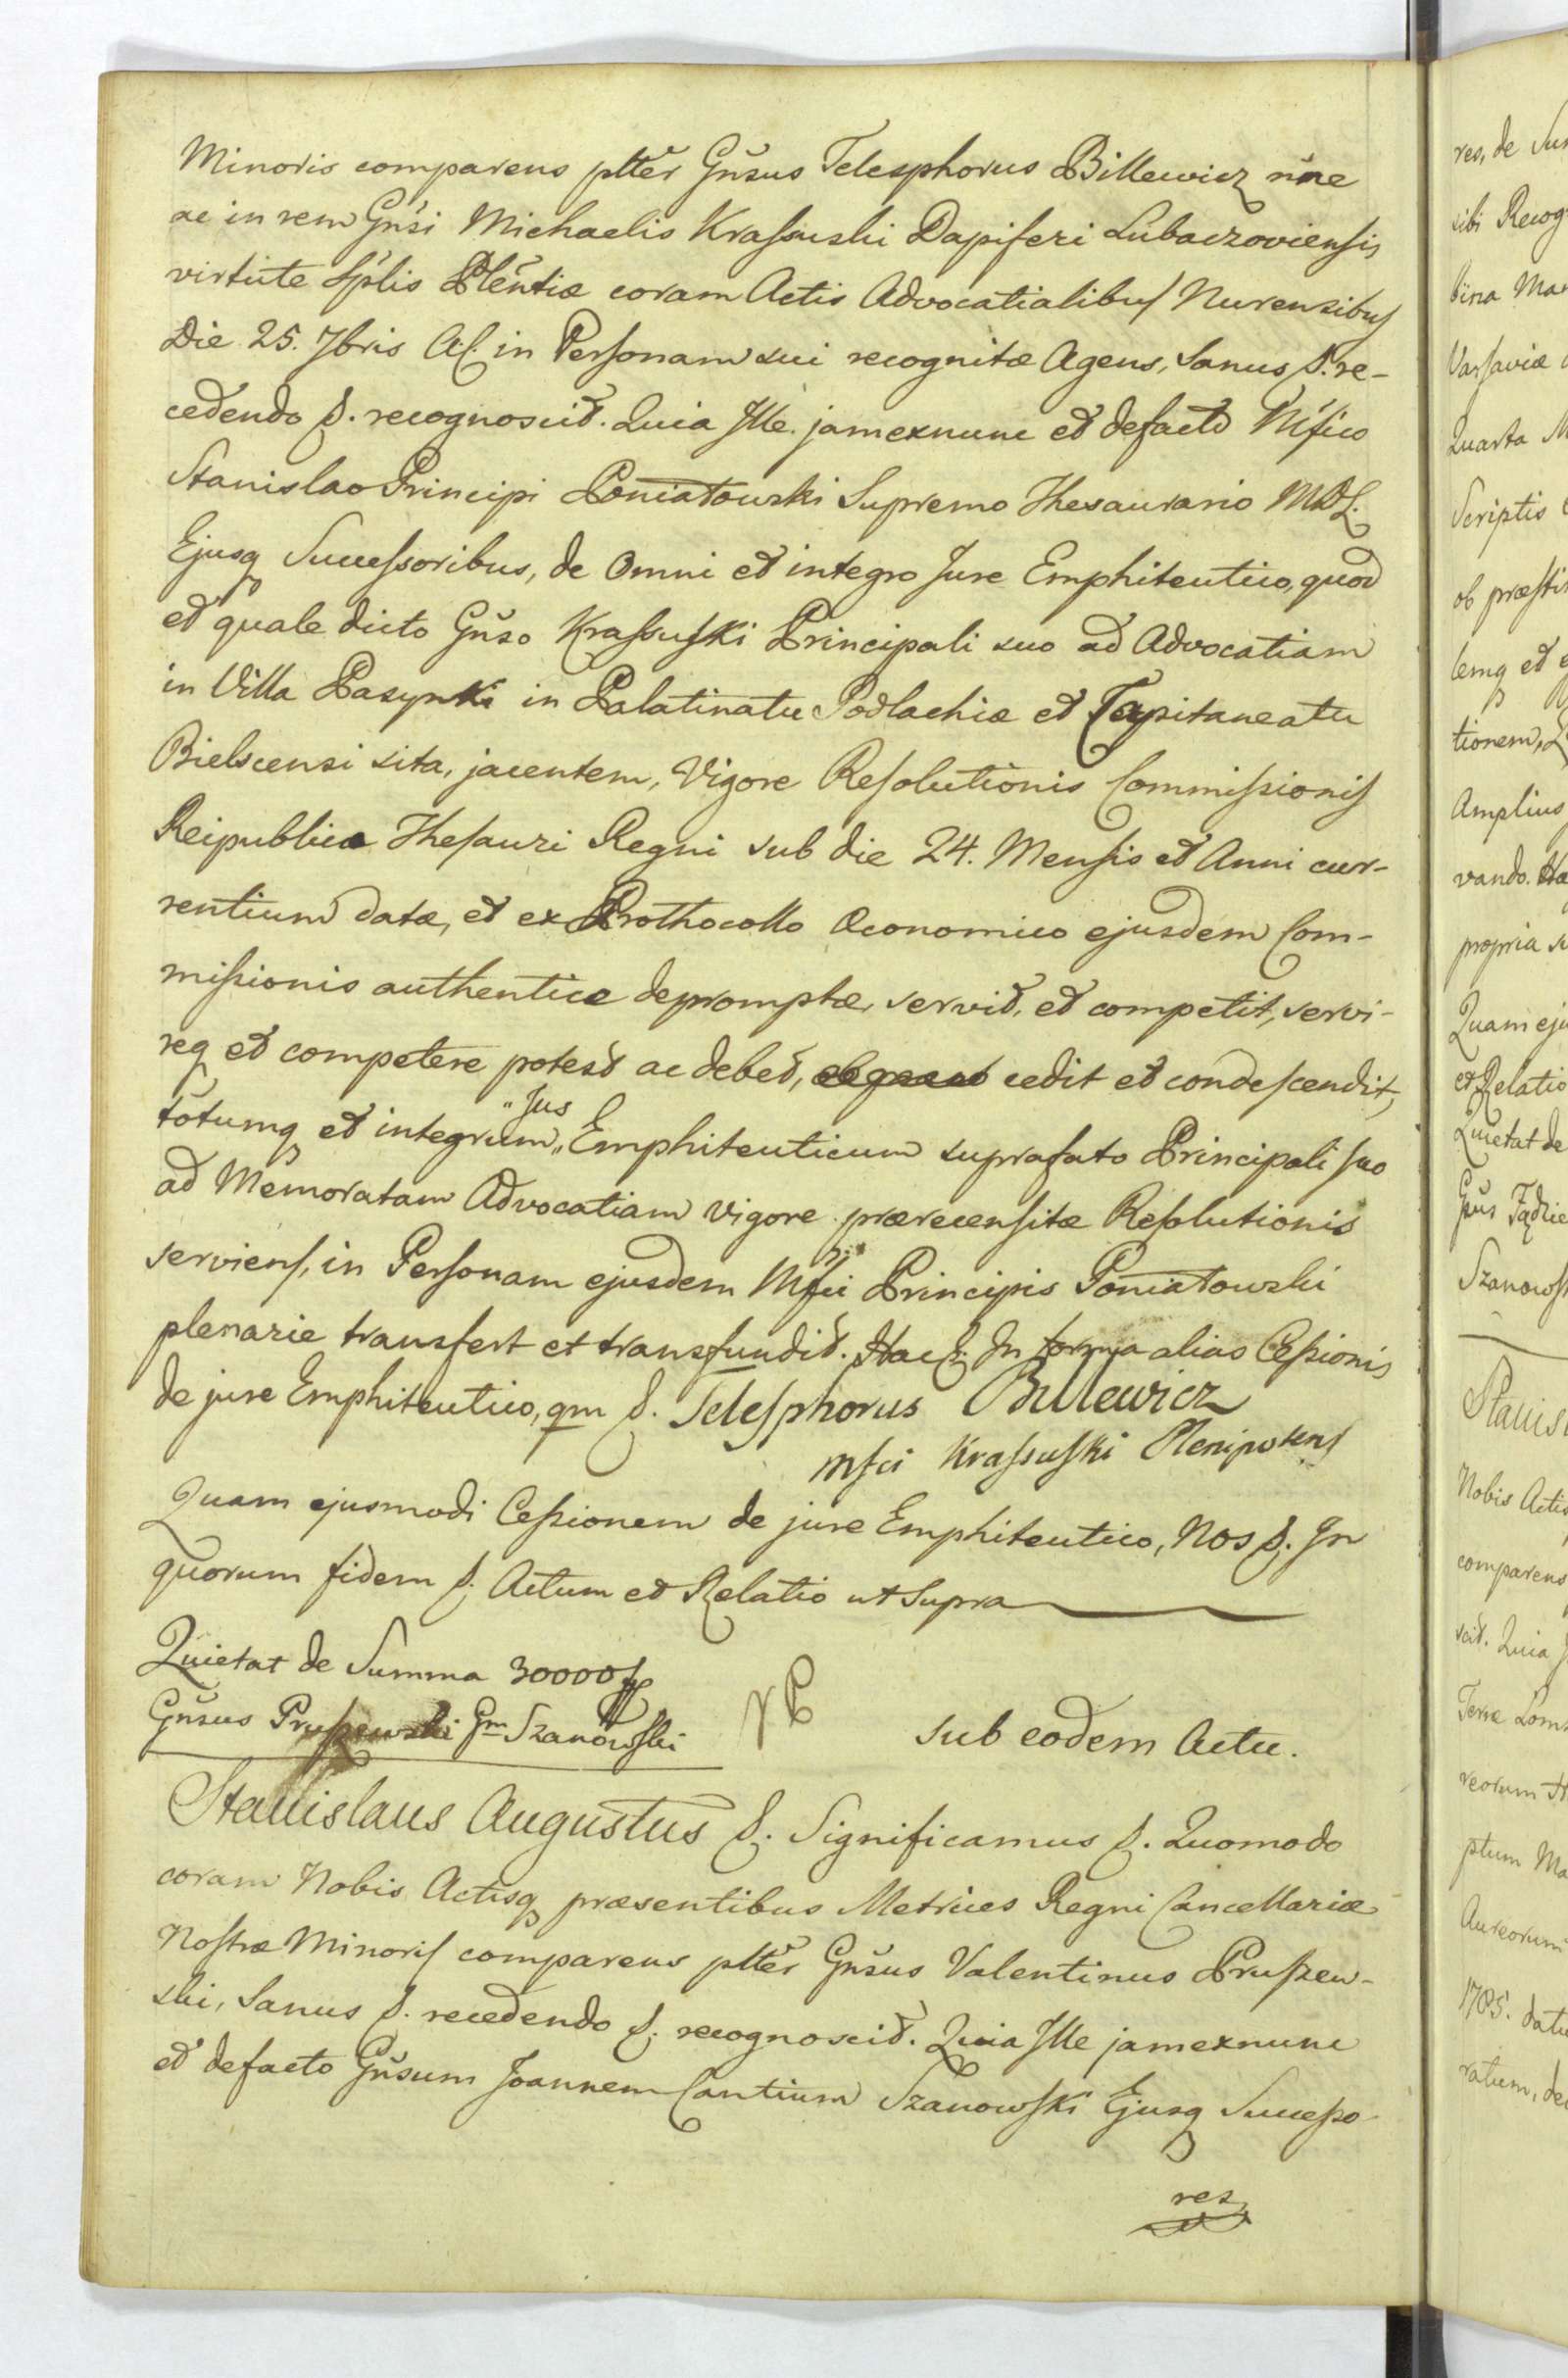 Minoris comparens pltter Gnsus Telesphorus Billewicz nne
ac in rem Gnsi Michaelis Krassuski Dapiferi Lubaczoviensis
virtute Splis Plentiæ coram Actis Advocatialibus Nurensibus
Die 25. 7bris Ac. in Personam sui recognitæ Agens, Sanus &. re-
cedendo &. recognoscit. Quia Ille jamexnunc et defacto Mfico
Stanislao Principi Poniatowski Supremo Thesaurario MDL.
Ejusq Successoribus, de Omni et integro Jure Emphiteutico, quod
et quale dicto Gnso Krassuski Principali suo ad Advocatiam
in Villa Pasynki in Palatinatu Podlachiæ et Capitaneatu
Bielscensi sita, jacentem, Vigore Resolutionis Commissionis
Reipublicæ Thesauri Regni sub die 24. Mensis et Anni cur-
rentium datæ, et ex Prothocollo Œconomico ejusdem Com-
missionis authentice depromptæ, servit, et competit, servi-
req et competere potest ac debet, cedit et condescendit,
totumq et integrum „Jus„ Emphiteuticum suprafato Principali suo
ad Memoratam Advocatiam vigore prærecensitæ Resolutionis
serviens, in Personam ejusdem Mfci Principis Poniatowski
plenarie transfert et transfundit. Hac &. In forma alias Cessionis
de jure Emphiteutico, qm &. Telesphorus Billewicz
Mfci Krassuski Plenipotens
Quam ejusmodi Cessionem de jure Emphiteutico, Nos &. In
quorum fidem &. Actum et Relatio ut Supra
Quietat de Summa 30000 fp
Gnsus Pruszewski Gm Szanowski
sub eodem Actu.
Stanislaus Augustus &. Significamus &. Quomodo
coram Nobis Actisq præsentibus Metrices Regni Cancellariæ
Nostræ Minoris comparens pltter Gnsus Valentinus Pruszew-
ski, Sanus &. recedendo &. recognoscit. Quia Ille jamexnunc
et defacto Gnsum Joannem Cantium Szanowski Ejusq Successo-
res,
res, de
sibi Recog
Varsaviæ
Quarta
Scriptis
lemq et
tionem,
Amplius
vando. Hæ
propria
Quam eju
et Relatio
Quietat de
Szanows
Stanis
Nobis Actis
comparens
scit. Quia
Terræ Lom
reorum
ptum Ma
Aureorum
1785. datu
ratum, de